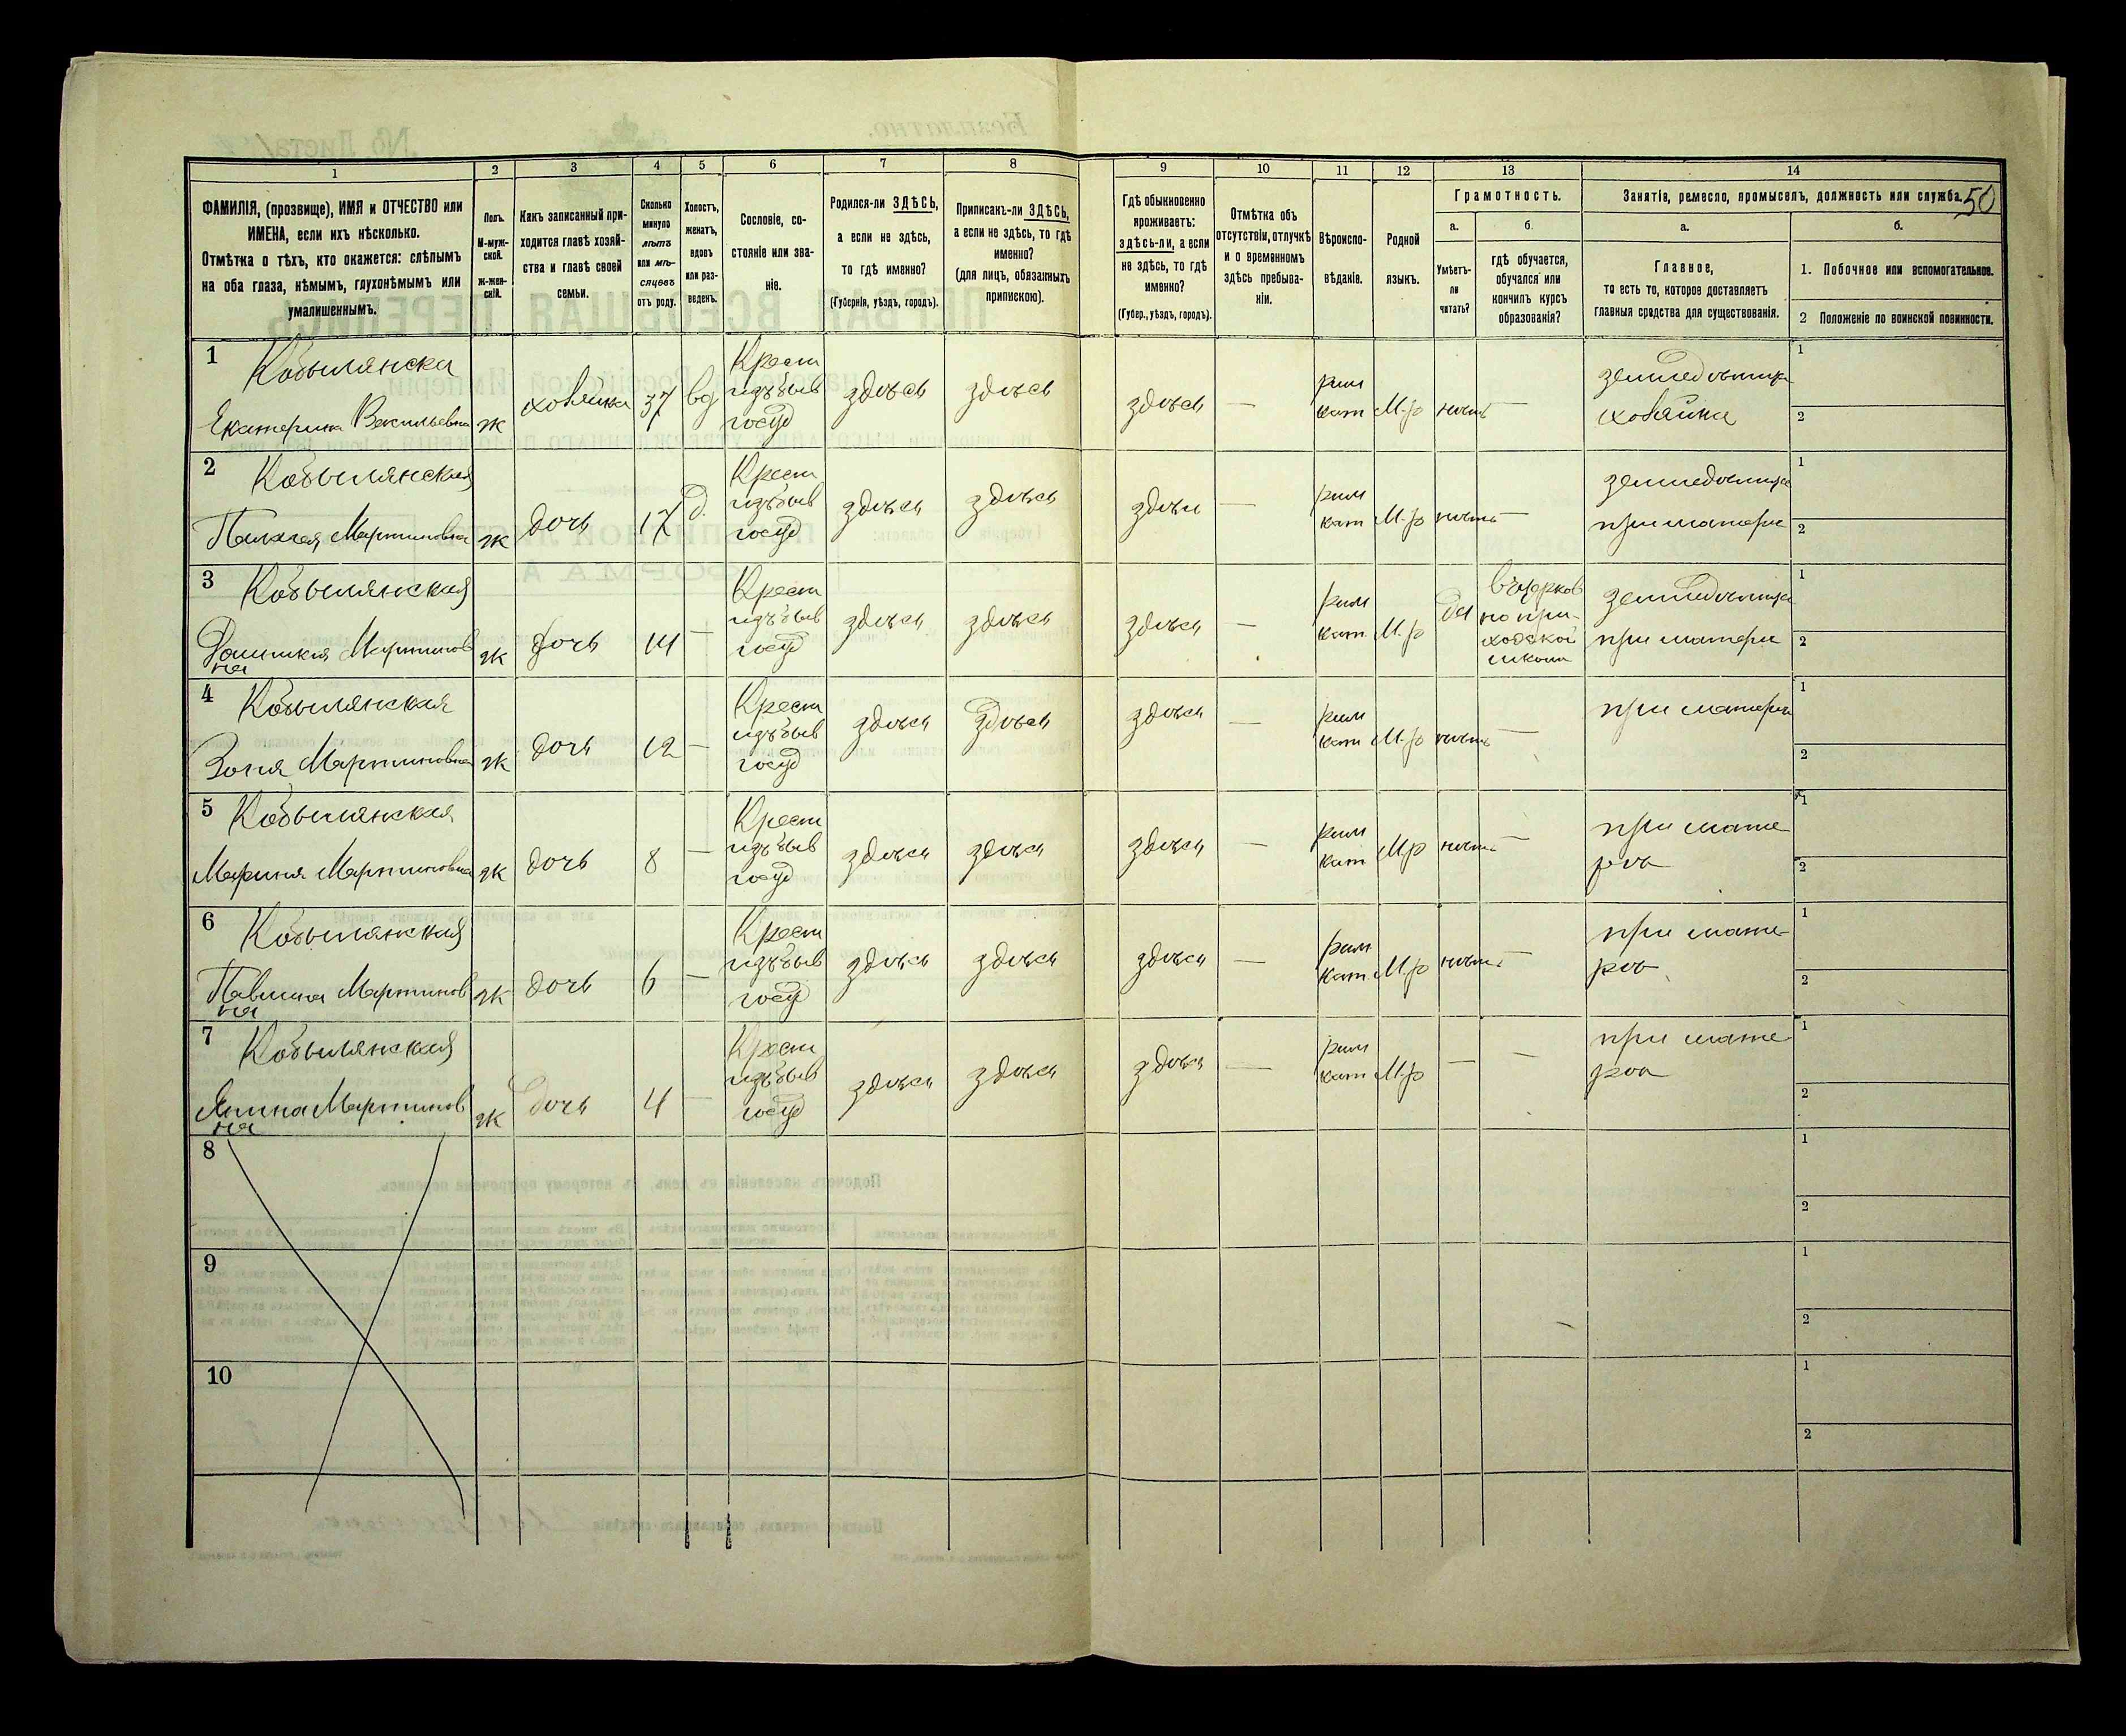 50
1
2
3
4
5
6
7
8
9
10
11
12
13
14
ФАМИЛІЯ, (прозвище), ИМЯ и ОТЧЕСТВО или
ИМЕНА, если ихъ нѣсколько.
Отмѣтка о тѣхъ, кто окажется: слѣпымъ
на оба глаза, нѣмымъ, глухонѣмымъ или
умалишеннымъ.
Полъ.
М-муж-
ской.
ж-жен-
скій.
Какъ записанный при-
ходится главѣ хозяй-
ства и главѣ своей
семьи.
Сколько
минуло
лѣтъ
или мѣ-
сяцевъ
отъ роду.
Холостъ,
женатъ,
вдовъ
или раз-
веденъ.
Сословіе, со-
стояніе или зва-
ніе.
Родился-ли ЗДѢСЬ,
а если не здѣсь,
то гдѣ именно?
(Губернія, уѣздъ, городъ).
Приписанъ-ли ЗДѢСЬ,
а если не здѣсь, то гдѣ
именно?
(для лицъ, обязанныхъ
припискою).
Гдѣ обыкновенно
проживаетъ:
здѣсь-ли, а если
не здѣсь, то гдѣ
именно?
(Губер., уѣздъ, городъ).
Отмѣтка объ
отсутствіи, отлучкѣ
и о временномъ
здѣсь пребыва-
ніи.
Вѣроиспо-
вѣданіе.
Родной
языкъ.
Грамотность.
а.
Умѣетъ-
ли
читать?
б.
гдѣ обучается,
обучался или
кончилъ курсъ
образованія?
Занятія, ремесло, промыселъ, должность или служба.
а.
Главное,
то есть то, которое доставляетъ
главныя средства для существованія.
б.
1. Побочное или вспомогательное.
2 Положеніе по воинской повинности.
1
Кобылянска
Екатерина Васильевна
ж
хозяйка
37
вд
Крест
изъ быв
госуд
здѣсь
здѣсь
здѣсь
—
рим
кат
М-р
нѣтъ
—
хозяйка
1
2
2
Кобылянская
Мартиновна
ж
дочь
17
д.
Крест
изъ быв
госуд
здѣсь
здѣсь
здѣсь
—
рим
кат
М-р
нѣтъ
—
при матери
1
2
3
Кобылянская
Мартинов
на
ж
дочь
14
—
Крест
изъ быв
госуд
здѣсь
здѣсь
здѣсь
—
рим
кат
М-р
да
въ церков
но при-
ходской
школѣ
при матери
1
2
4
Кобылянская
Зофия Мартиновна
ж
дочь
12
—
Крест
изъ быв
госуд
здѣсь
здѣсь
здѣсь
—
рим
кат
М-р
нѣтъ
—
при матери
1
2
5
Кобылянская
Мартиновна
ж
дочь
8
—
Крест
изъ быв
госуд
здѣсь
здѣсь
здѣсь
—
рим
кат
Мр
нѣтъ
—
при мате-
рѣ
1
2
6
Кобылянская
Павлина Мартинов
на
ж
дочь
6
—
Крест
изъ быв
госуд
здѣсь
здѣсь
здѣсь
—
рим
кат
М-р
нѣтъ
—
при мате-
рѣ
1
2
7
Кобылянская
Янина Мартинов
на
ж
дочь
4
—
Крест
изъ быв
госуд
здѣсь
здѣсь
здѣсь
—
рим
кат
М-р
—
—
при мате-
рѣ
1
2
8
1
2
9
1
2
10
1
2